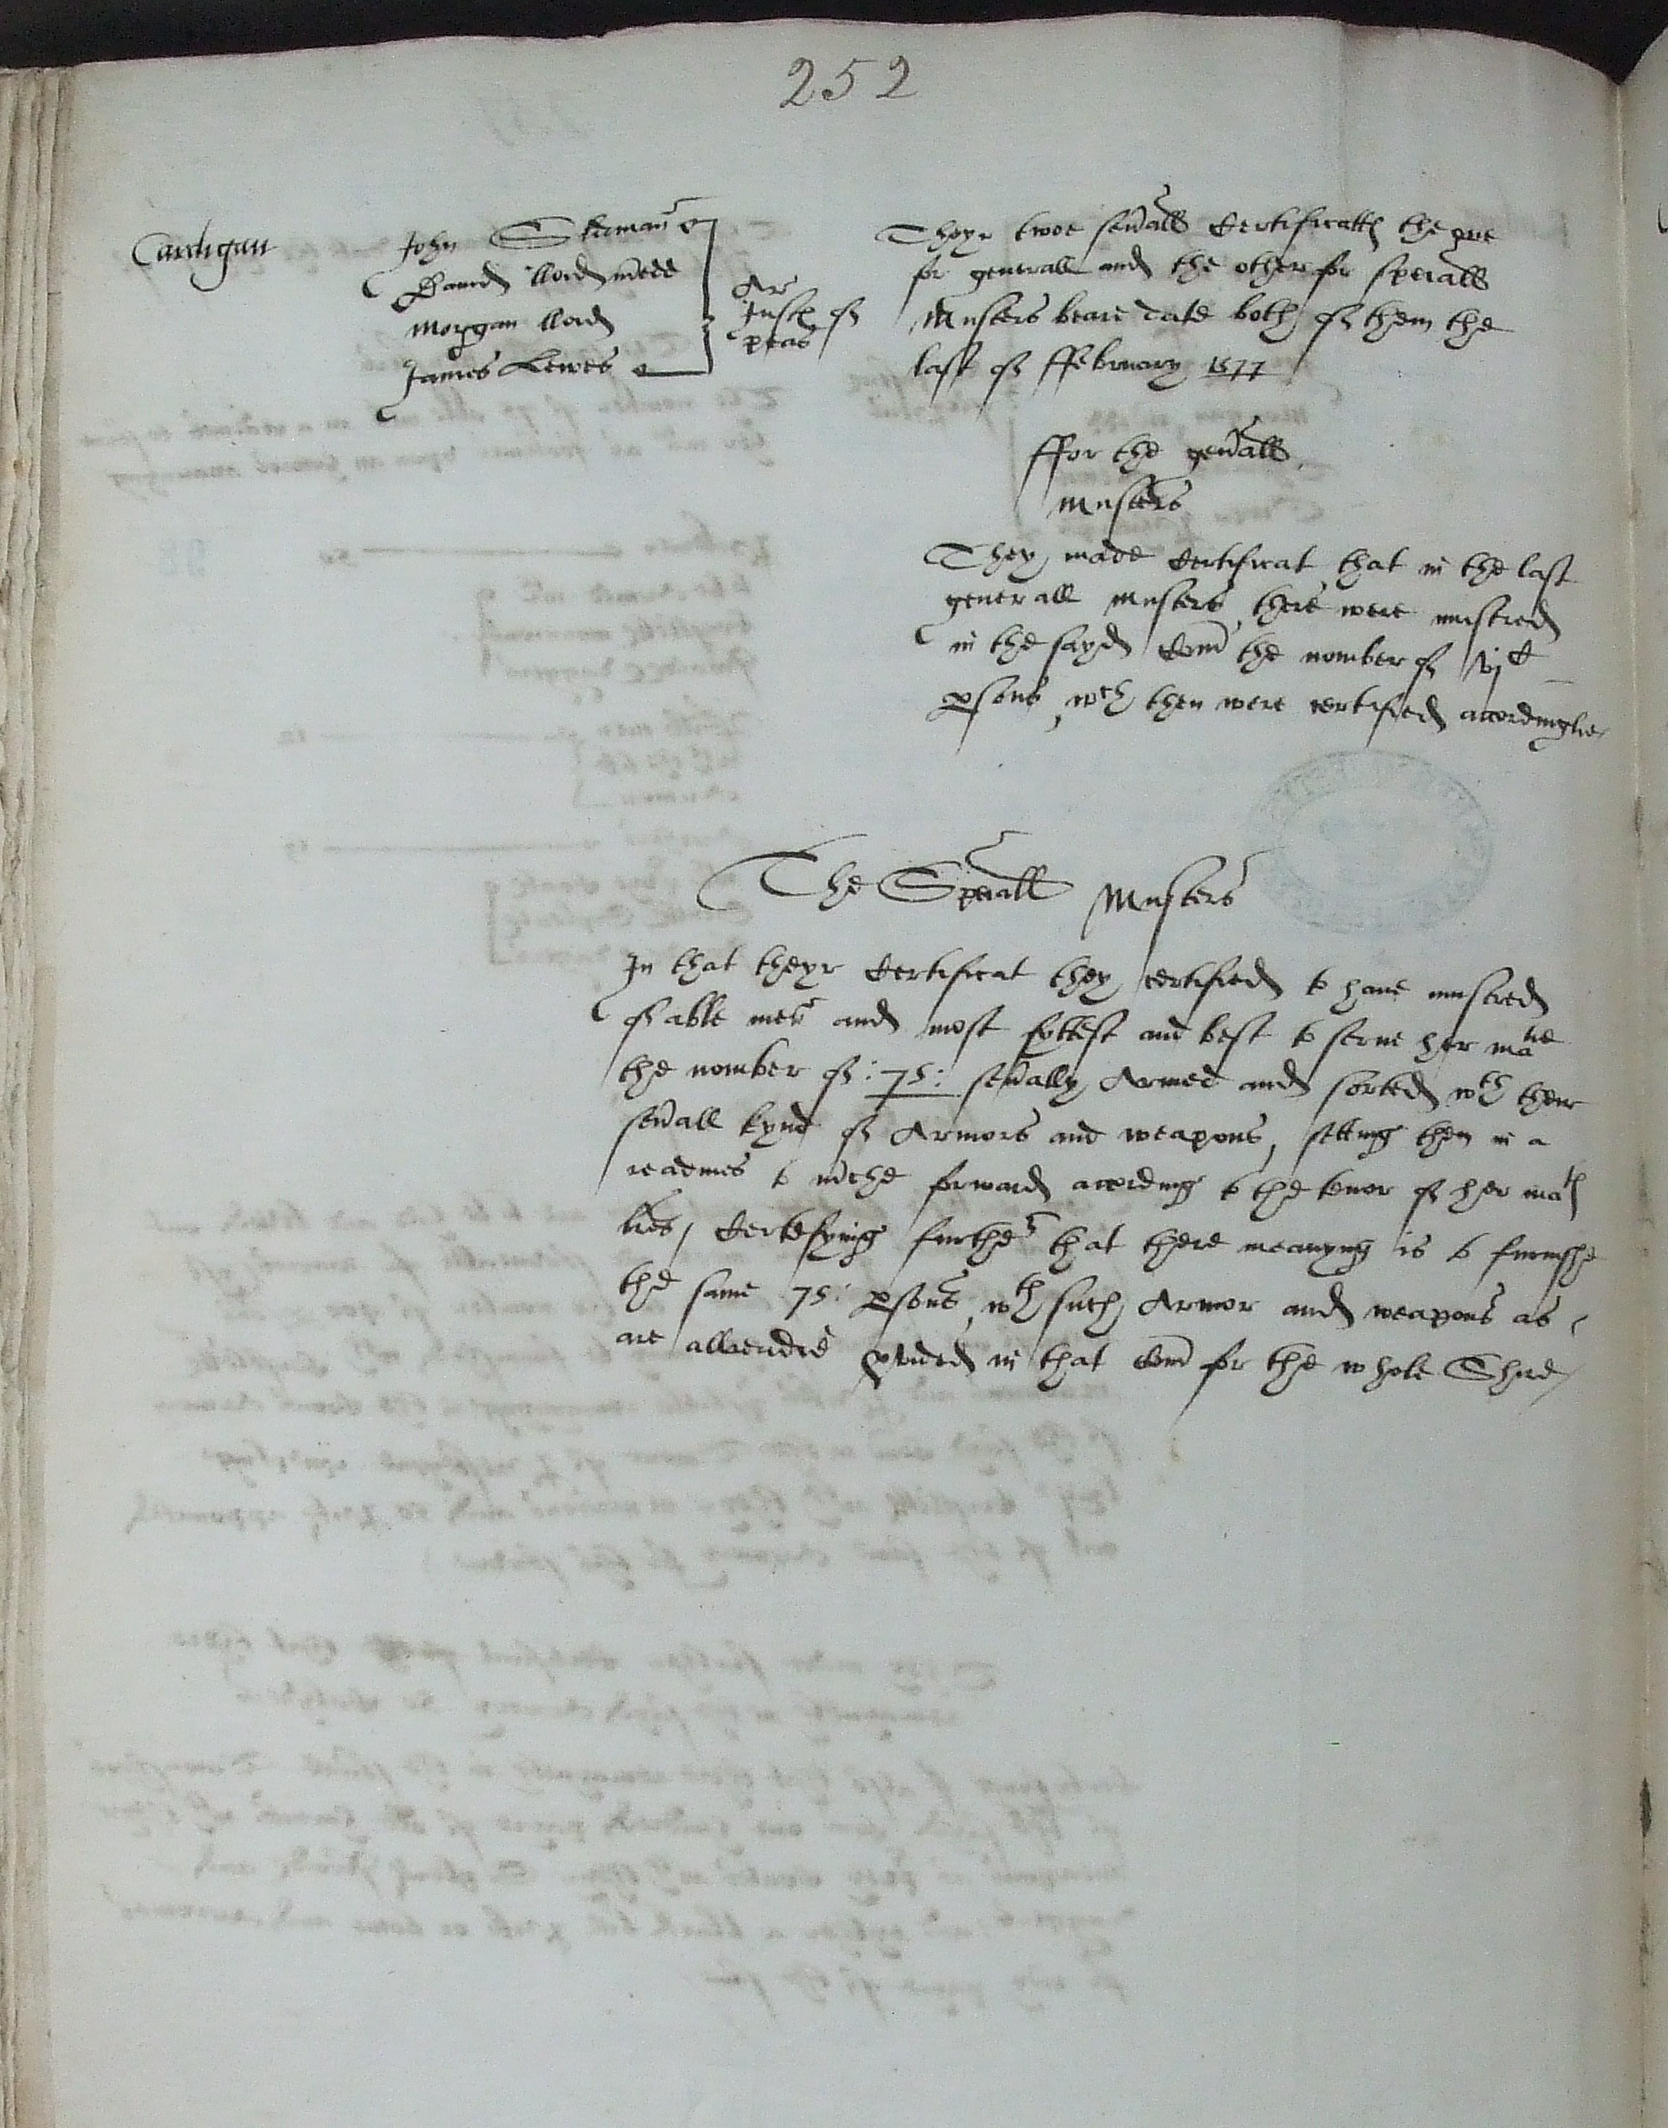 252
Cardigan
John Stedman
David lloid meredd
Morgan lloid
James Lewes
Ar
Justic of
peas
Theyr twoe seuall Certificatts the one
for generall and the other for speciall
Musters beare date both of them the
last of ffebruary 1577
ffor the genall
musters
They made Certificat that in the last
generall musters there were mustred
in the sayd Com the nomber of vjC
psons wch then were certified accordinglie
The Speciall Musters
In that theyr Certificat they certified to haue mustred
of able men and most fyttest and best to serue her matie
the nomber of :75: seually Armed and sorted wth their
seuall kynd of Armors and weapons, setting them in a
readines to mche forward according to the tenor of her maty
lres, Certefying further that there meanyng is to furnishe
the same 75: psons wth such Armor and weapons as
are allreadie pvided in that Com for the whole Shire